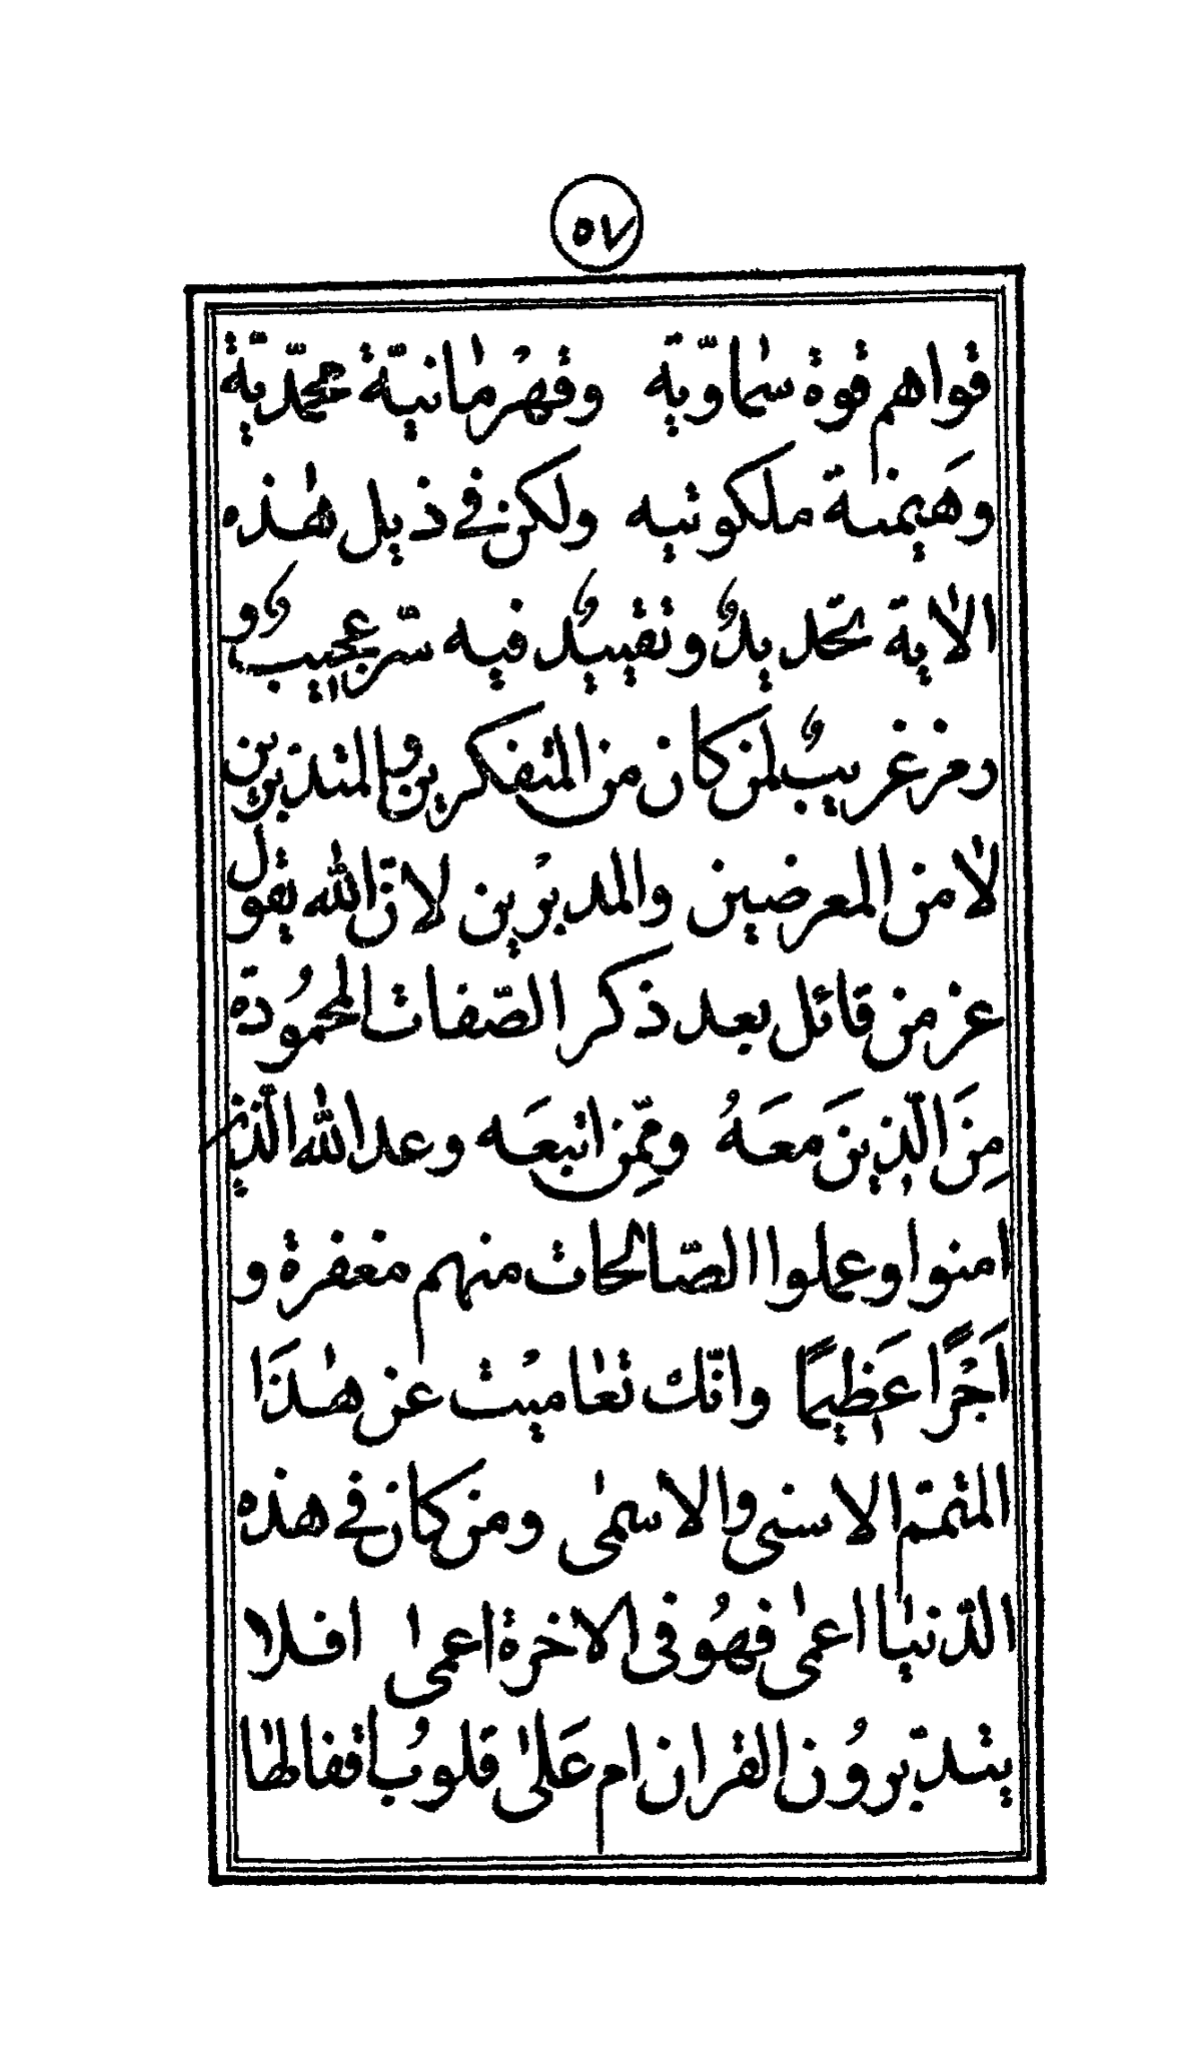 ٥٧
قواهم قوة سماوّية وقهرمانيّة محمّديّة
وهيمنة ملكوتيه ولكن في ذيل هذه
الاية تحديدٌ وتقييدٌ فيه سّر عجيبٌ و
رمز غريبٌ لمن كان من المتفكرين والمتدبرين
لا من المعرضين والمدبرين لانّ الله يقول
عز من قائل بعد ذكر الصّفات المحمُودة
مِنَ الّذِينَ معَهُ وممِّن اتبعَه وعد الله الّذين
امنوا وعملوا الصّالحات منهم مغفرة و
اَجْرًا عَظِيمًا وانّك تعاميت عن هذَا
المتمّم الاسنى والاسمى ومن كان في هذه
الدّنيا اعمى فهُو في الاخرة اعمى افلا
يتدبّرُون القران ام عَلى قلوُب اقفالها